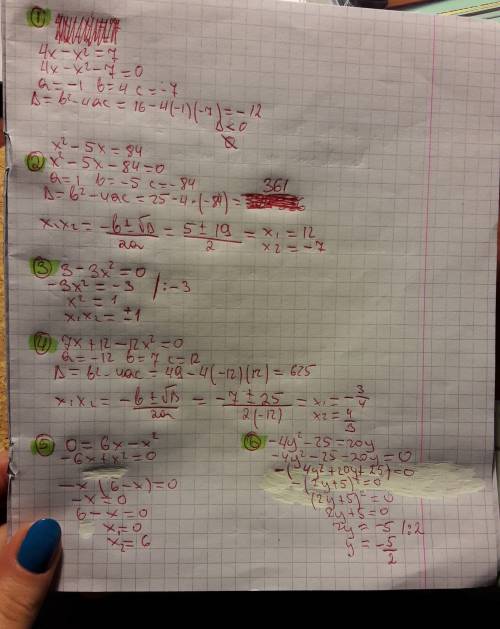 ①
4x - x² = 7
4x - x² - 7 = 0
a = -1 b = 4 c = -7
Δ = b² - 4ac = 16 - 4(-1)(-7) = -12
Δ < 0
x² - 5x = 84
② x² - 5x - 84 = 0
a = 1 b = -5 c = -84
Δ = b² - 4ac = 25 - 4·(-84) = 361
x₁x₂ = (-b ± √Δ)/2a = (5 ± 19)/2 = x₁ = 12
x₂ = -7
③ 3 - 3x² = 0
-3x² = -3 /: -3
x² = 1
x₁x₂ = ±1
④ 7x + 12 - 12x² = 0
a = -12 b = 7 c = 12
Δ = b² - 4ac = 49 - 4(-12)(12) = 625
x₁x₂ = (-b ± √Δ)/2a = (-7 ± 25)/2(-12) = x₁ = -3/4
x₂ = 4/3
⑤ 0 = 6x - x²
-6x + x² = 0
-x (6 - x) = 0
-x = 0
6 - x = 0
x₁ = 0
x₂ = 6
⑥ -4y² - 25 = 20y
-4y² - 25 - 20y = 0
-(4y² + 20y + 25) = 0
-(2y + 5)² = 0
(2y + 5)² = 0
2y + 5 = 0
2y = -5 /: 2
y = -5/2